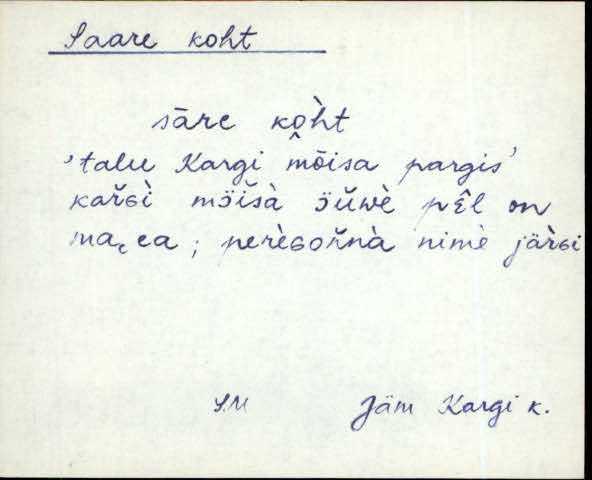 Saare koht
sāre ko̭h̀t
'talu Kargi mõisa pargis'
karšɢì mö̆išà öŭwè pə̑l on
ma꞉ea ; perèɢoňnà nimè järɢi
S.M Jäm Kargi k.